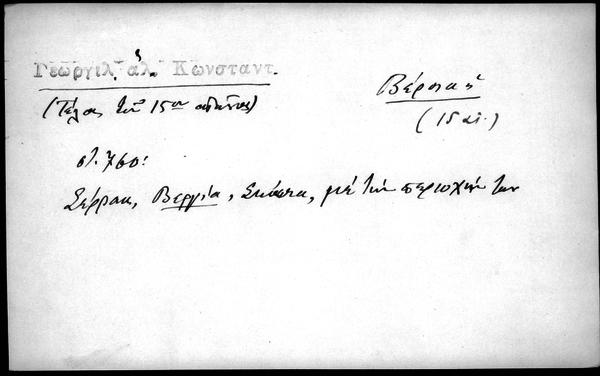 Γεωργιλ. ἁλ. Κωνσταντ.
(Τέλος τοῦ 15ου αἰῶνος)
(15 αἰ.)
στ. 760:
Σέρραι, Βερρία, Σκόπια, μὲ τὴν περιοχήν των